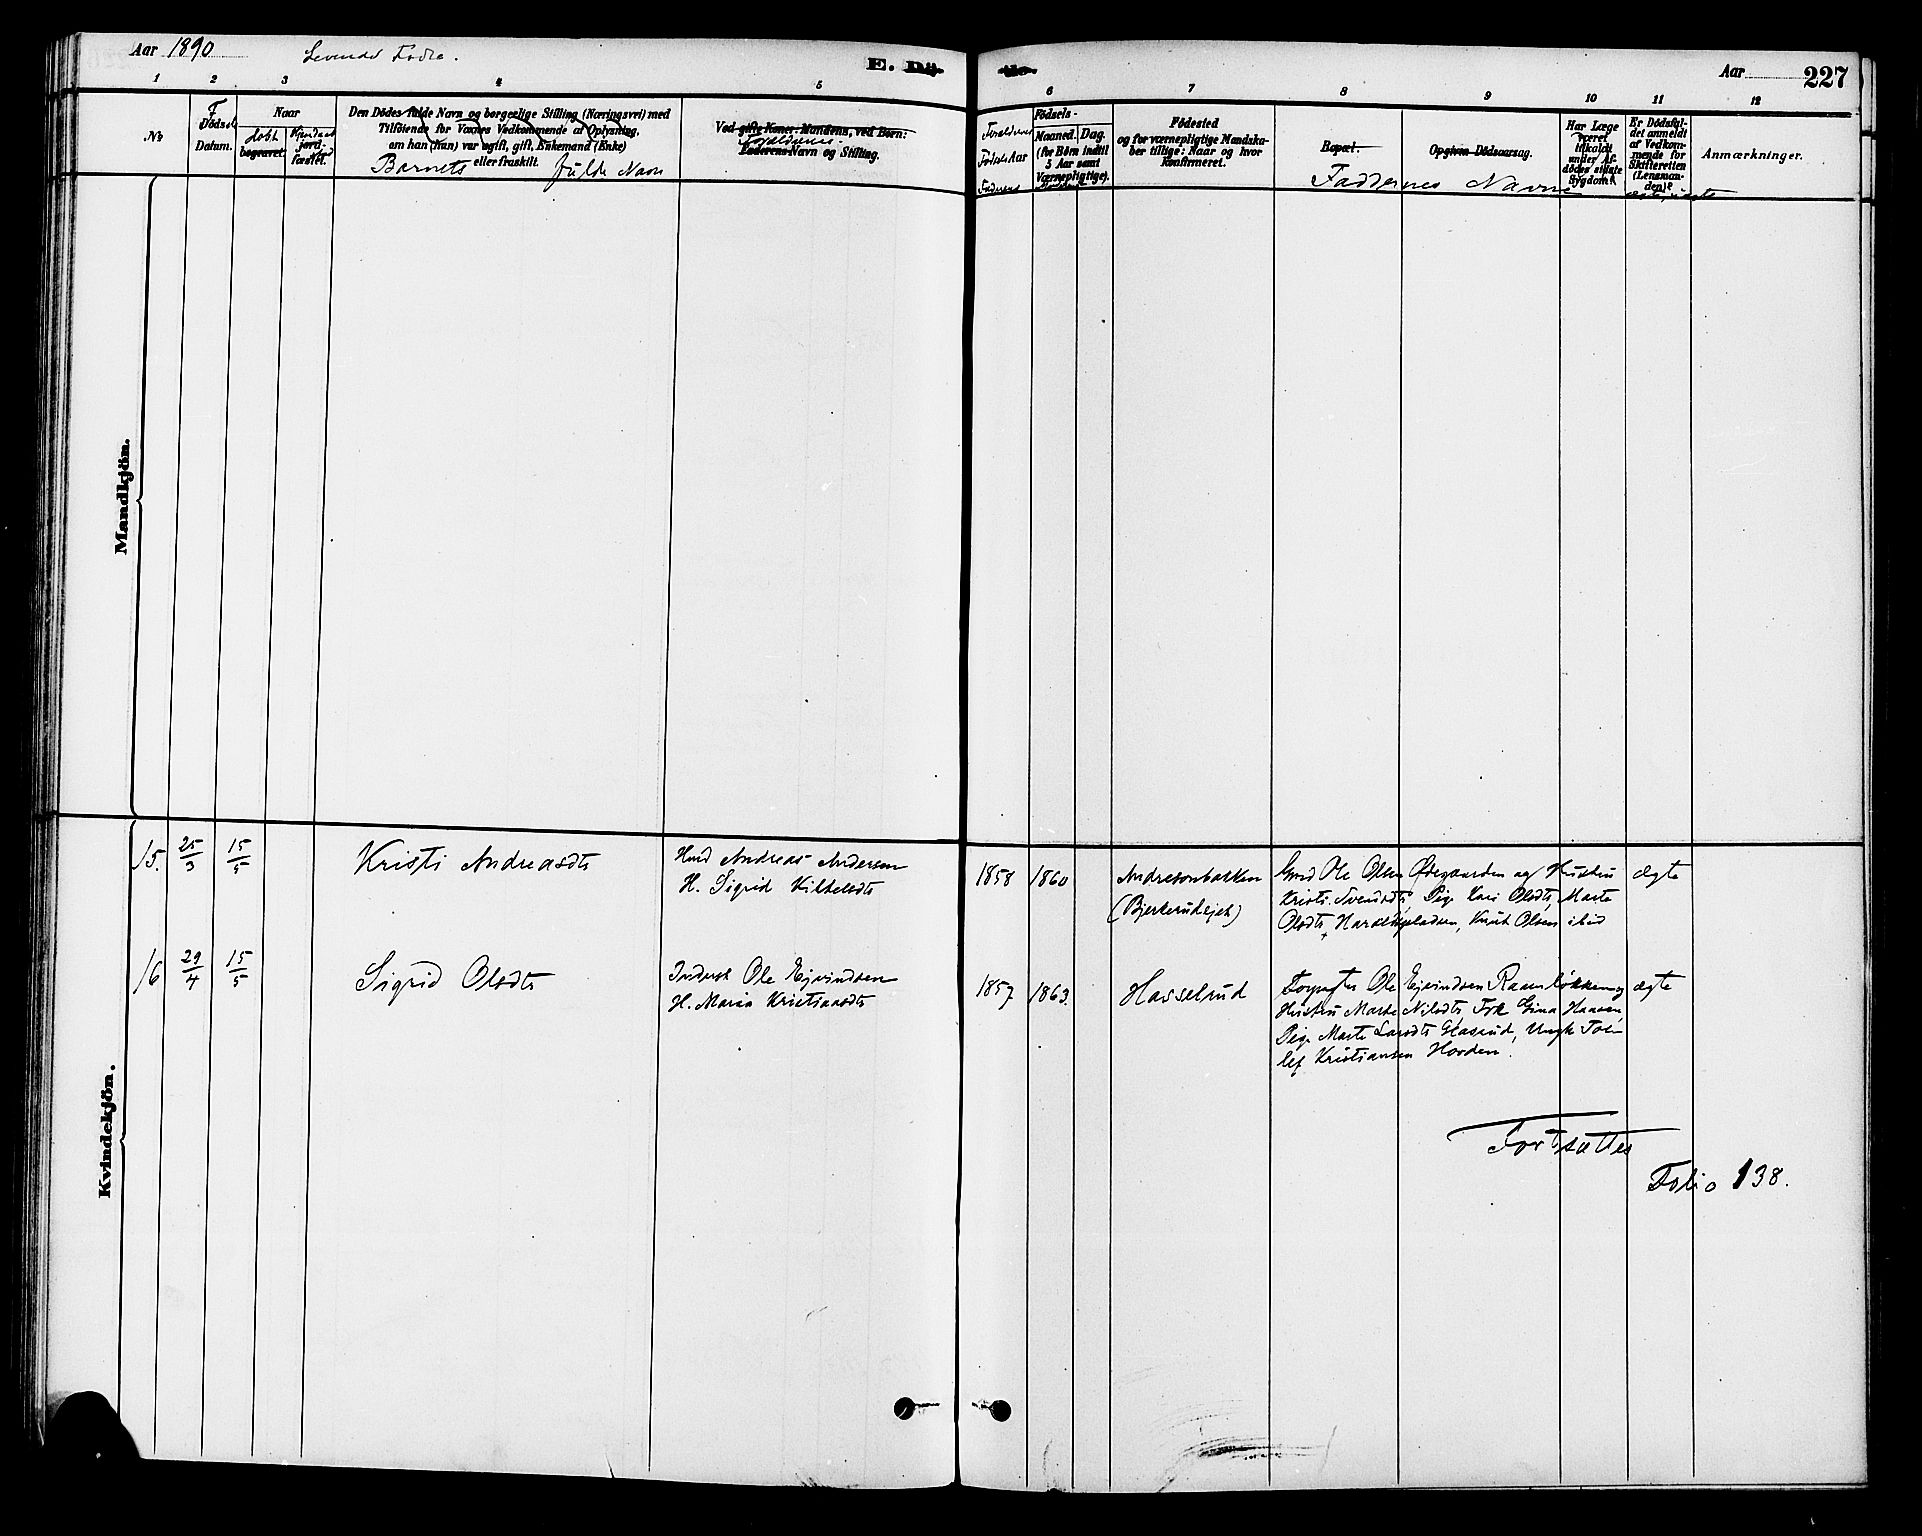 Aar 1890 Levende Fødte.
E. Dö
Aar 227
1 2 3 4 5
6 7 8 9 10 11 12
No
Födsels
Datum.
Naar
döbt
begravet.
jord-
fæstet.
Den Dödes fulde Navn og borgerlige Stilling (Næringsvei) med
Tilföiende for Voxnes Vedkommende af Oplysning,
om han (hun) var ugift, gift, Enkemand (Enke)
eller fraskilt.
Barnets fulde Navn
Ved gifte Koner: Mandens, ved Börn:
Forældrenes
Faderens Navn og Stilling.
Forældrenes
Födsels Aar
Faderens
Födsels-
Maaned. Dag.
(for Börn indtil
5 Aar samt
Værnepligtige).
Födested
og for værnepligtige Mandska-
ber tillige: Naar og hvor
konfirmeret.
Bopæl.
Opgiven Dödsaarsag.
Faddernes Navne
Har Læge
været
tilkaldt
under Af-
dödes sidste
Sygdom?
Er Dödsfal-
det anmeldt
af Vedkom-
mende for
Skifteretten
(Lensman-
den)?
Anmærkninger.
Mandkjön.
Kvindekjön.
15. 25/3 15/5 Kristi Andreasdtr Hmd Andreas Andersen
H. Sigrid Kittelsdtr
1858 1860 Andresonbakken
(Bjerkerudejet)
Gmd Ole Olsen Ødegaarden og Hustru
Kristi Svendsdtr, Pige Kari Olsdtr, Marte
Olsdtr, Haraldspladsen, Knut Olsen ibid
ægte
16 29/4 15/5 Sigrid Olsdtr Inderst Ole Ejvindsen
H. Maria Kristiansdtr
1857 1863. Hasselrud
Ole Ejvindsen Raamløkken og
Hustru Marte Nilsdtr, Frk Gina Hansen,
Pige Marte Larsdtr Glasrud, Ungk Tor-
lef Kristiansen Hovden.
ægte
Fortsættes
Folio 138.